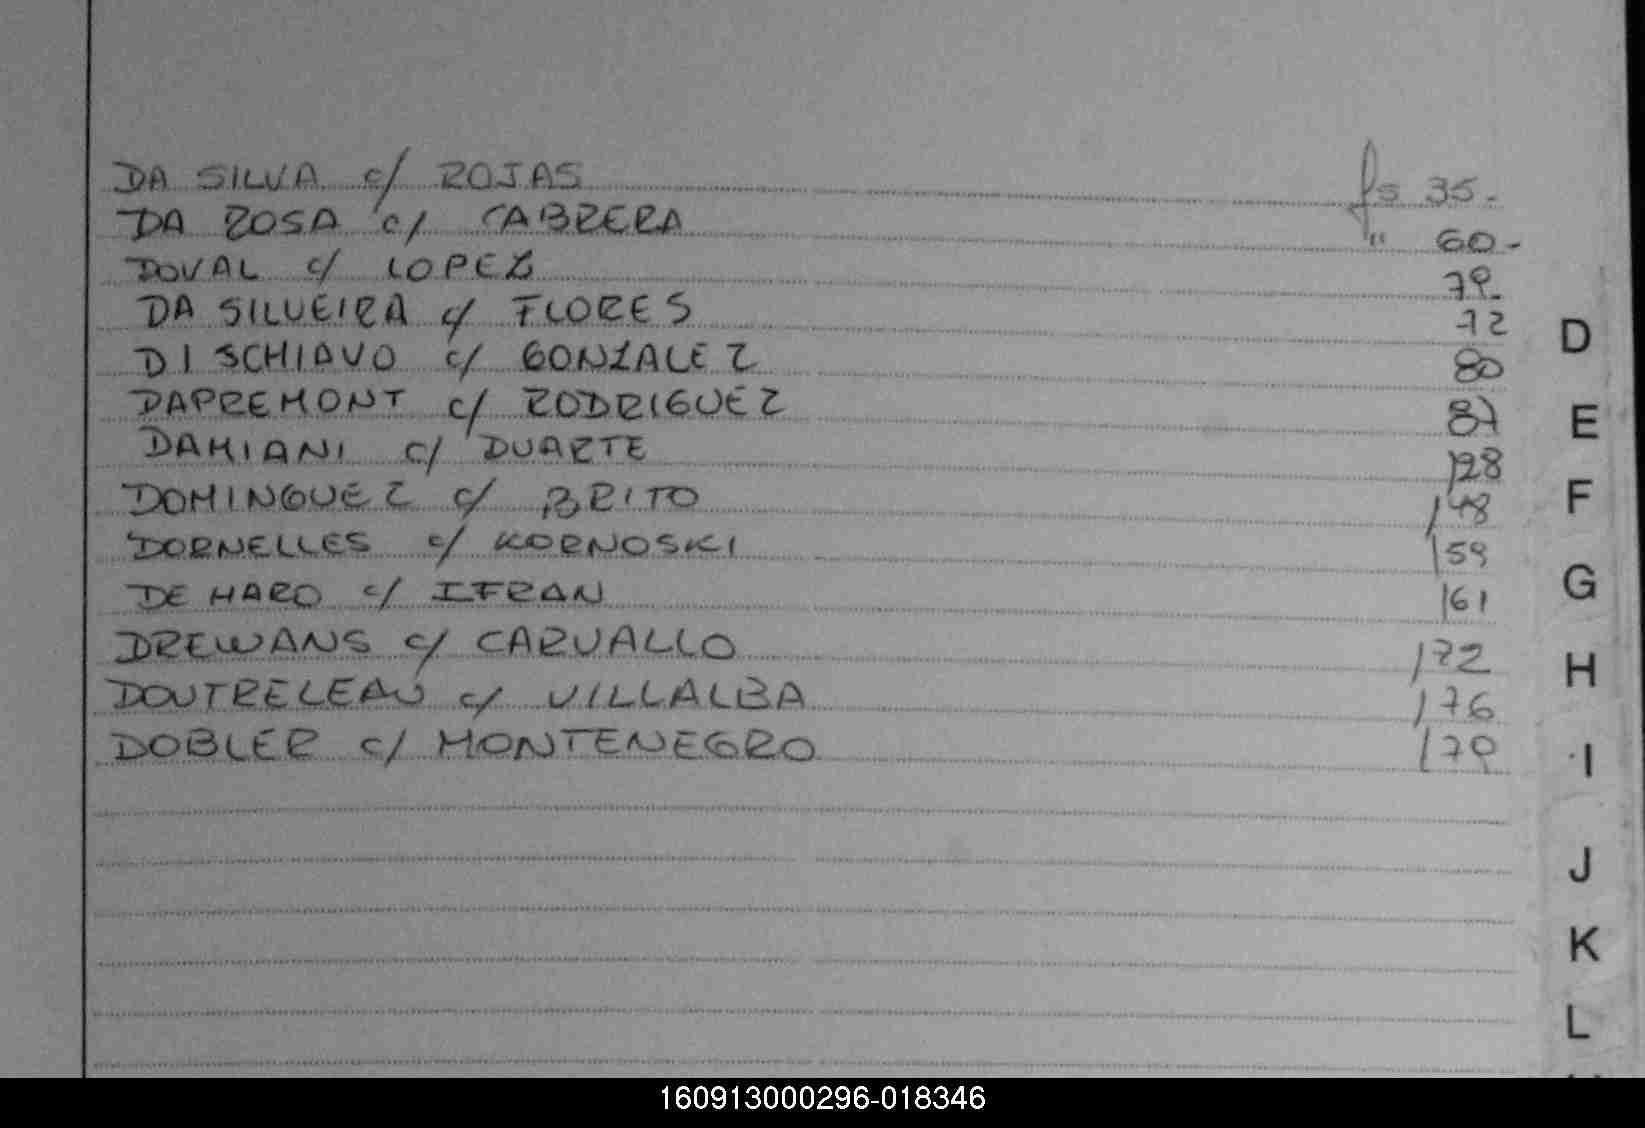 DA SILVA c/ ROJAS fs 35.-
DA ROSA c/ CABRERA " 60.-
DOVAL c/ LOPEZ
DA SILVEIRA c/ FLORES 72
DI SCHIAVO c/ GONZALEZ 80
DAPREMONT c/ RODRIGUEZ
DAMIANI c/ DUARTE 128
DOMINGUEZ c/ BRITO 148
DORNELLES c/ KORNOSKI 159
DE HARO c/ IFRAN 161
DREWANS c/ CARVALLO 172
DOUTRELEAU c/ VILLALBA 176
DOBLER c/ MONTENEGRO 179
D
E
F
G
H
I
J
K
L
160913000296-018346